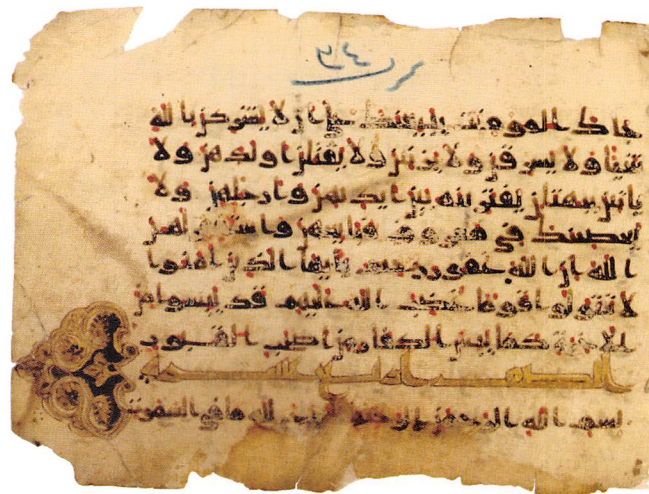 جاك المومنت يبايعنك على ان لا يشركن بالله
شيئا ولا يسرقن ولا يزنين ولا يقتلن اولدهن ولا
ياتين ببهتن يفترينه بين ايديهن وارجلهن ولا
يعصينك في معروف فبايعهن واستغفر لهن
الله ان الله غفور رحيم يايها الذين امنوا
لا تتولوا قوما غضب الله عليهم قد يىسوا من
الاخرة كما يىس الكفار من اصحب القبور
الصف اربع عشرة
بسم الله الرحمن الرحيم سبح لله ما في السموت